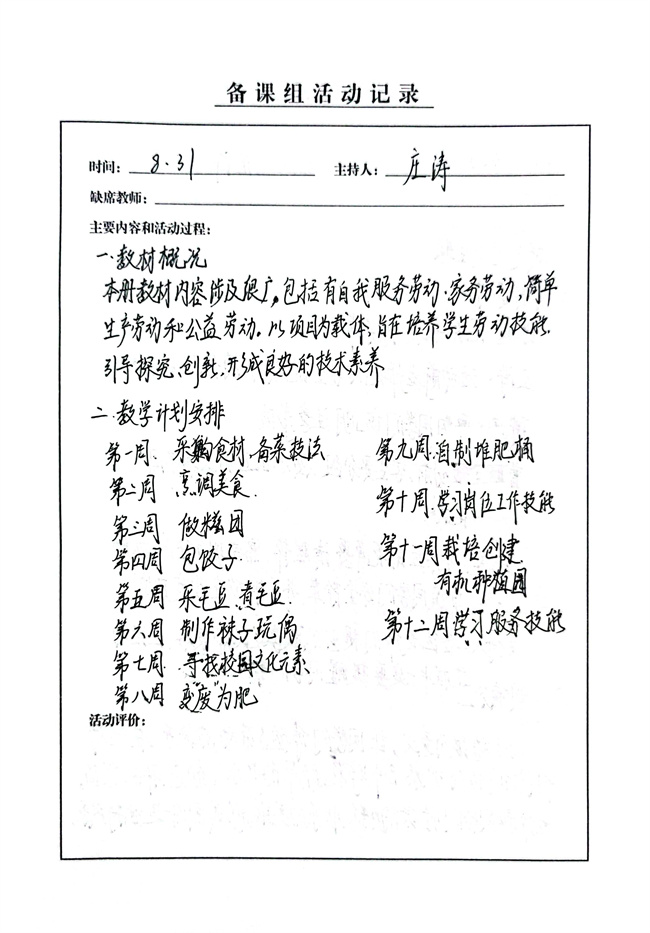 备课组活动记录
时间：8.31 主持人：庄涛
缺席教师：
主要内容和活动过程：
一.教材概况
本册教材内容涉及很广，包括有自我服务劳动、家务劳动，简单
生产劳动和公益劳动。以项目为载体，旨在培养学生劳动技能，
引导探究、创新，形成良好的技术素养
二.教学计划安排
第一周 采购食材、备菜技法
第二周 烹调美食
第三周 做糍团
第四周 包饺子
第五周 采毛豆、煮毛豆
第六周 制作袜子玩偶
第七周 寻找校园文化元素
第八周 变“废”为肥
第九周 自制堆肥桶
第十周 学习岗位工作技能
第十一周 栽培创建
有机种植园
第十二周 学习服务技能
活动评价：